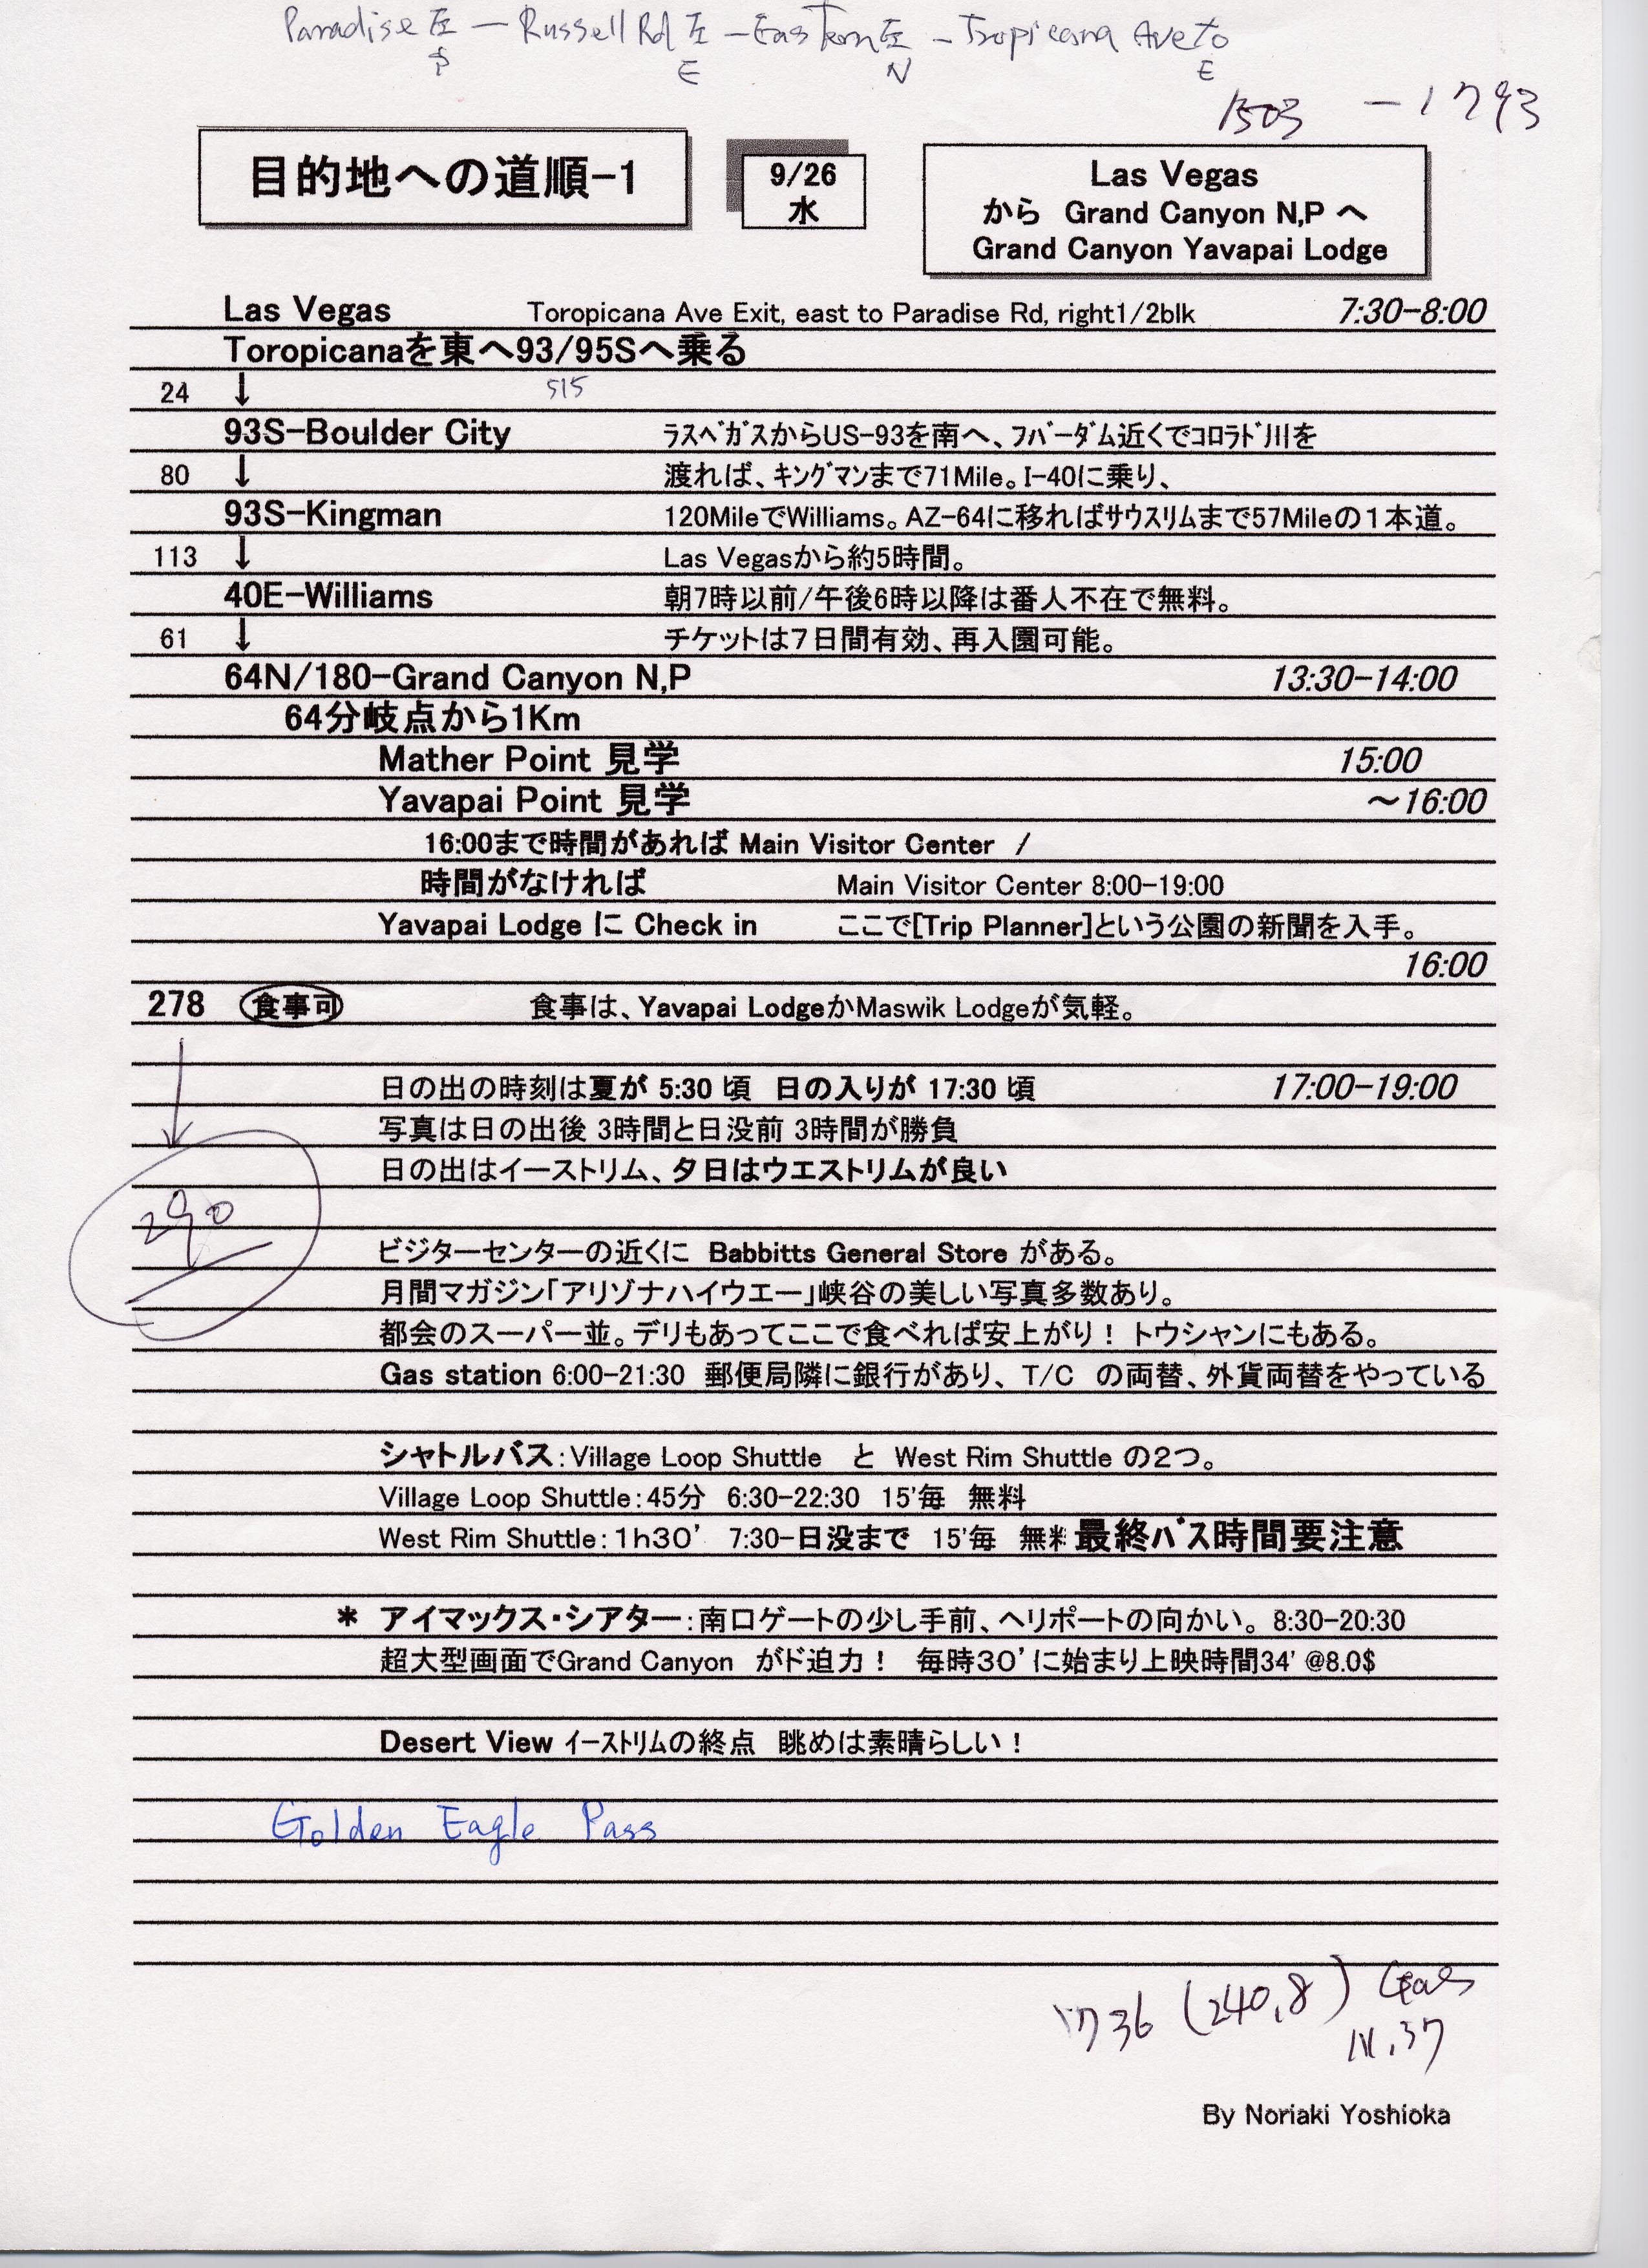 Paradise 左 — Russell Rd 左 — Eastern 左 — Tropicana Ave to
E N E
1503 — 1793
目的地への道順-1
9/26
水
Las Vegas
から Grand Canyon N,P へ
Grand Canyon Yavapai Lodge
Las Vegas Toropicana Ave Exit, east to Paradise Rd, right1/2blk 7:30-8:00
Toropicanaを東へ93/95Sへ乗る
24 ↓ 515
93S-Boulder City ﾗｽﾍﾞｶﾞｽからUS-93を南へ、ﾌﾊﾞｰﾀﾞﾑ近くでｺﾛﾗﾄﾞ川を
80 ↓ 渡れば、ｷﾝｸﾞﾏﾝまで71Mile。I-40に乗り、
93S-Kingman 120MileでWilliams。AZ-64に移ればｻｳｽﾘﾑまで57Mileの１本道。
113 ↓ Las Vegasから約5時間。
40E-Williams 朝7時以前/午後6時以降は番人不在で無料。
61 ↓ チケットは７日間有効、再入園可能。
64N/180-Grand Canyon N,P 13:30-14:00
64分岐点から1Km
Mather Point 見学 15:00
Yavapai Point 見学 ～16:00
16:00まで時間があれば Main Visitor Center /
時間がなければ Main Visitor Center 8:00-19:00
Yavapai Lodge に Check in ここで[Trip Planner]という公園の新聞を入手。
16:00
278 食事可 食事は、Yavapai LodgeかMaswik Lodgeが気軽。
日の出の時刻は夏が 5:30 頃 日の入りが 17:30 頃 17:00-19:00
写真は日の出後 3時間と日没前 3時間が勝負
日の出はイーストリム、夕日はウエストリムが良い
290
ビジターセンターの近くに Babbitts General Store がある。
月間マガジン「アリゾナハイウエー」峡谷の美しい写真多数あり。
都会のスーパー並。デリもあってここで食べれば安上がり！ トウシャンにもある。
Gas station 6:00-21:30 郵便局隣に銀行があり、T/C の両替、外貨両替をやっている
シャトルバス：Village Loop Shuttle と West Rim Shuttle の２つ。
Village Loop Shuttle：45分 6:30-22:30 15'毎 無料
West Rim Shuttle：１h３０’ 7:30-日没まで 15'毎 無料 最終ﾊﾞｽ時間要注意
＊ アイマックス・シアター：南口ゲートの少し手前、ヘリポートの向かい。8:30-20:30
超大型画面でGrand Canyon がド迫力！ 毎時３０’に始まり上映時間34’ @8.0$
Desert View ｲｰｽﾄﾘﾑの終点 眺めは素晴らしい！
Golden Eagle Pass
1736 (240.8) Gas
11.37
By Noriaki Yoshioka